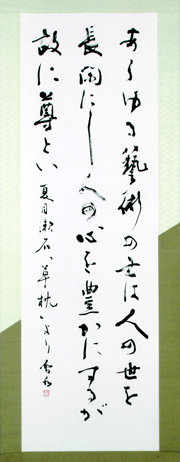 あらゆる藝術の士は人の世を
長閑にし人の心を豊かにするが
故に尊とい 夏目漱石「草枕」より